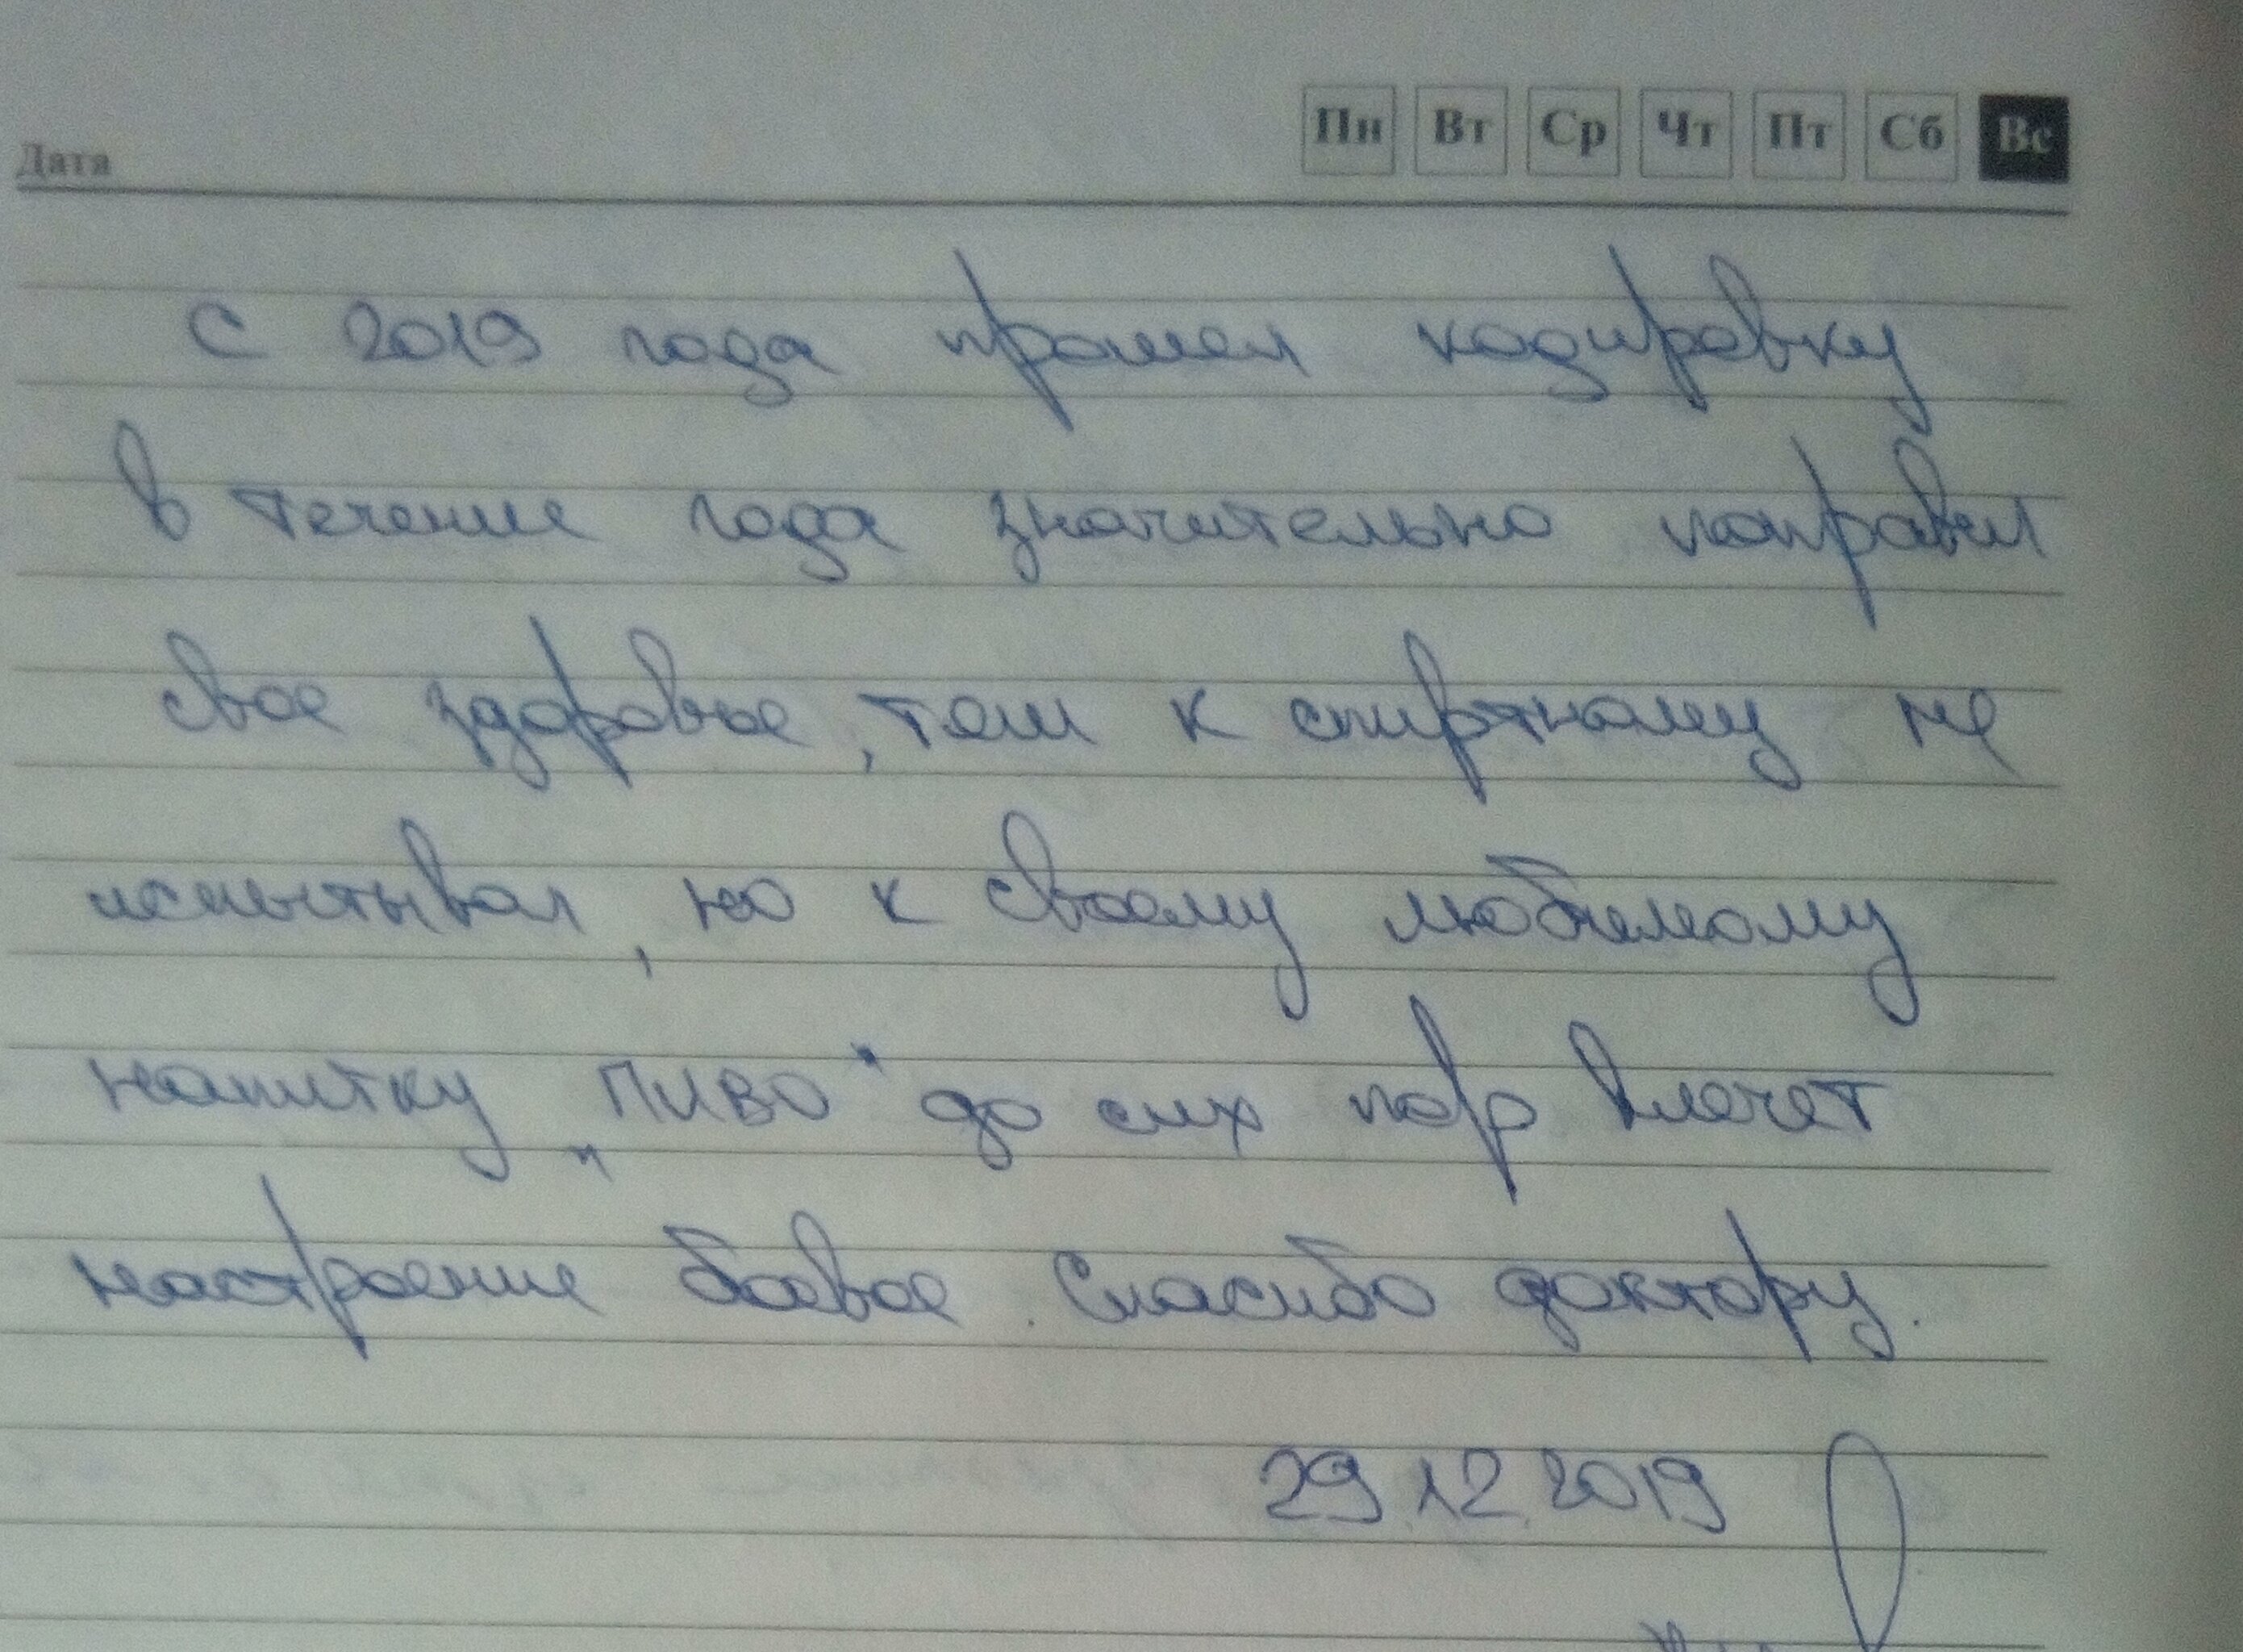 Дата Пн Вт Ср Чт Пт Сб Вс
С 2019 года прошел кодировку
в течение года значительно поправил
свое здоровье, тягу к спиртному не
испытывал, но к своему любимому
напитку "ПИВО" до сих пор влечет
настроение боевое. Спасибо доктору.
29.12.2019